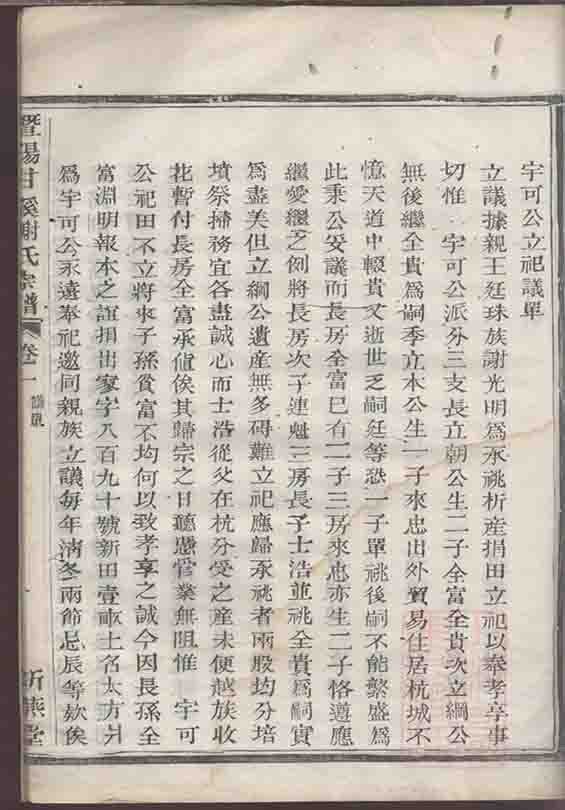 宇可公立祀議單
立議據親王廷珠族謝光明爲承祧析產捐田立祀以奉孝享事
切惟　宇可公派分三支長立朝公生二子全富全貴次立綱公
無後繼全貴爲嗣季立本公生一子來忠出外貿易住居杭城不
憶天道中輟貴又逝世乏嗣廷等恐一子單祧後嗣不能繁盛爲
此乘公妥議而長房全富已有二子三房來忠亦生二子恪遵應
繼愛繼之例將長房次子連魁三房長子士浩並祧全貴爲嗣實
爲盡美但立綱公遺產無多碍難立祀應歸承祧者兩股均分培
墳祭掃務宜各盡誠心而士浩從父在杭分受之產未便越族收
花暫付長房全富承值俟其歸宗之日聽憑管業無阻惟　宇可
公祀田不立將來子孫貧富不均何以致孝享之誠今因長孫全
富淵明報本之誼捐出寥字八百九十號新田壹畝土名太方丬
爲宇可公永遠奉祀邀同親族立議每年清冬兩節忌辰等欵俟
暨陽甘溪謝氏宗譜
卷一　議單